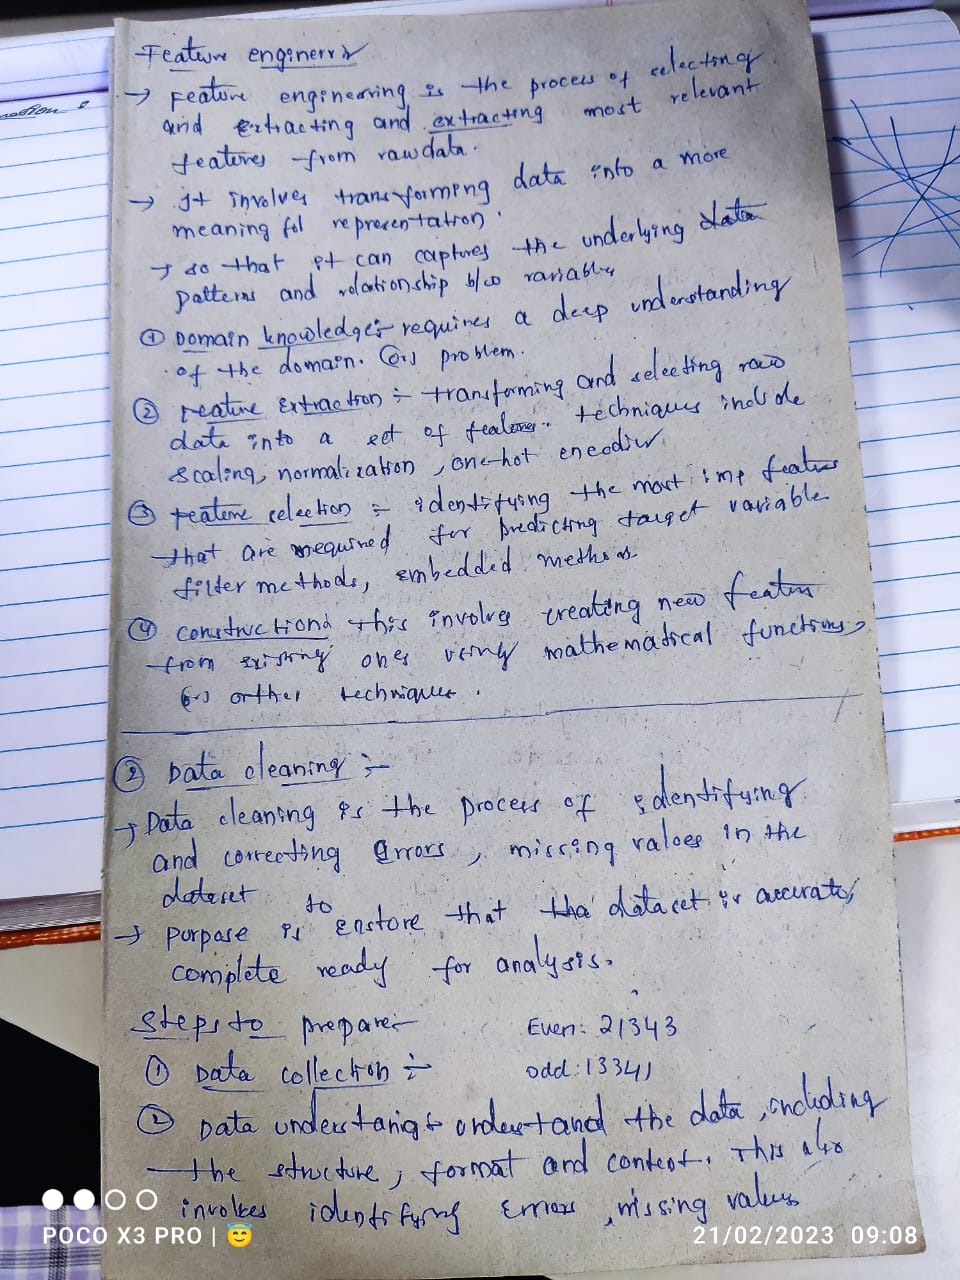 Feature engineerr
→ Feature engineering is the process of selecting
and extracting and extracting most relevant
features from rawdata.
→ It involves transforming data into a more
meaning ful representation.
→ so that it can captures the underlying data
patterns and relationship b/w variables
① Domain knowledge:- requires a deep understanding
of the domain. (or) problem.
② Feature Extraction :- transforming and selecting raw
data into a set of features. techniques include
scaling, normalization, one-hot encodir
③ Feature selection :- identifying the most imp featurs
that are required for predicting target variable
filter methods, embedded methods
④ construction this involves creating new features
from existing ones using mathematical functions,
(or) orther techniques.
② Data cleaning :-
→ Data cleaning is the process of identifying
and correcting Errors, missing values in the
dataset
→ purpose is to enstore that tha dataset is accurate,
complete ready for analysis.
Steps to prepare:-
Even: 21343
① Data collection :-
odd: 13341
② Data understanig :- understand the data, including
the structure, format and content. This also
involves identifying Errors, missing values
POCO X3 PRO |
21/02/2023 09:08